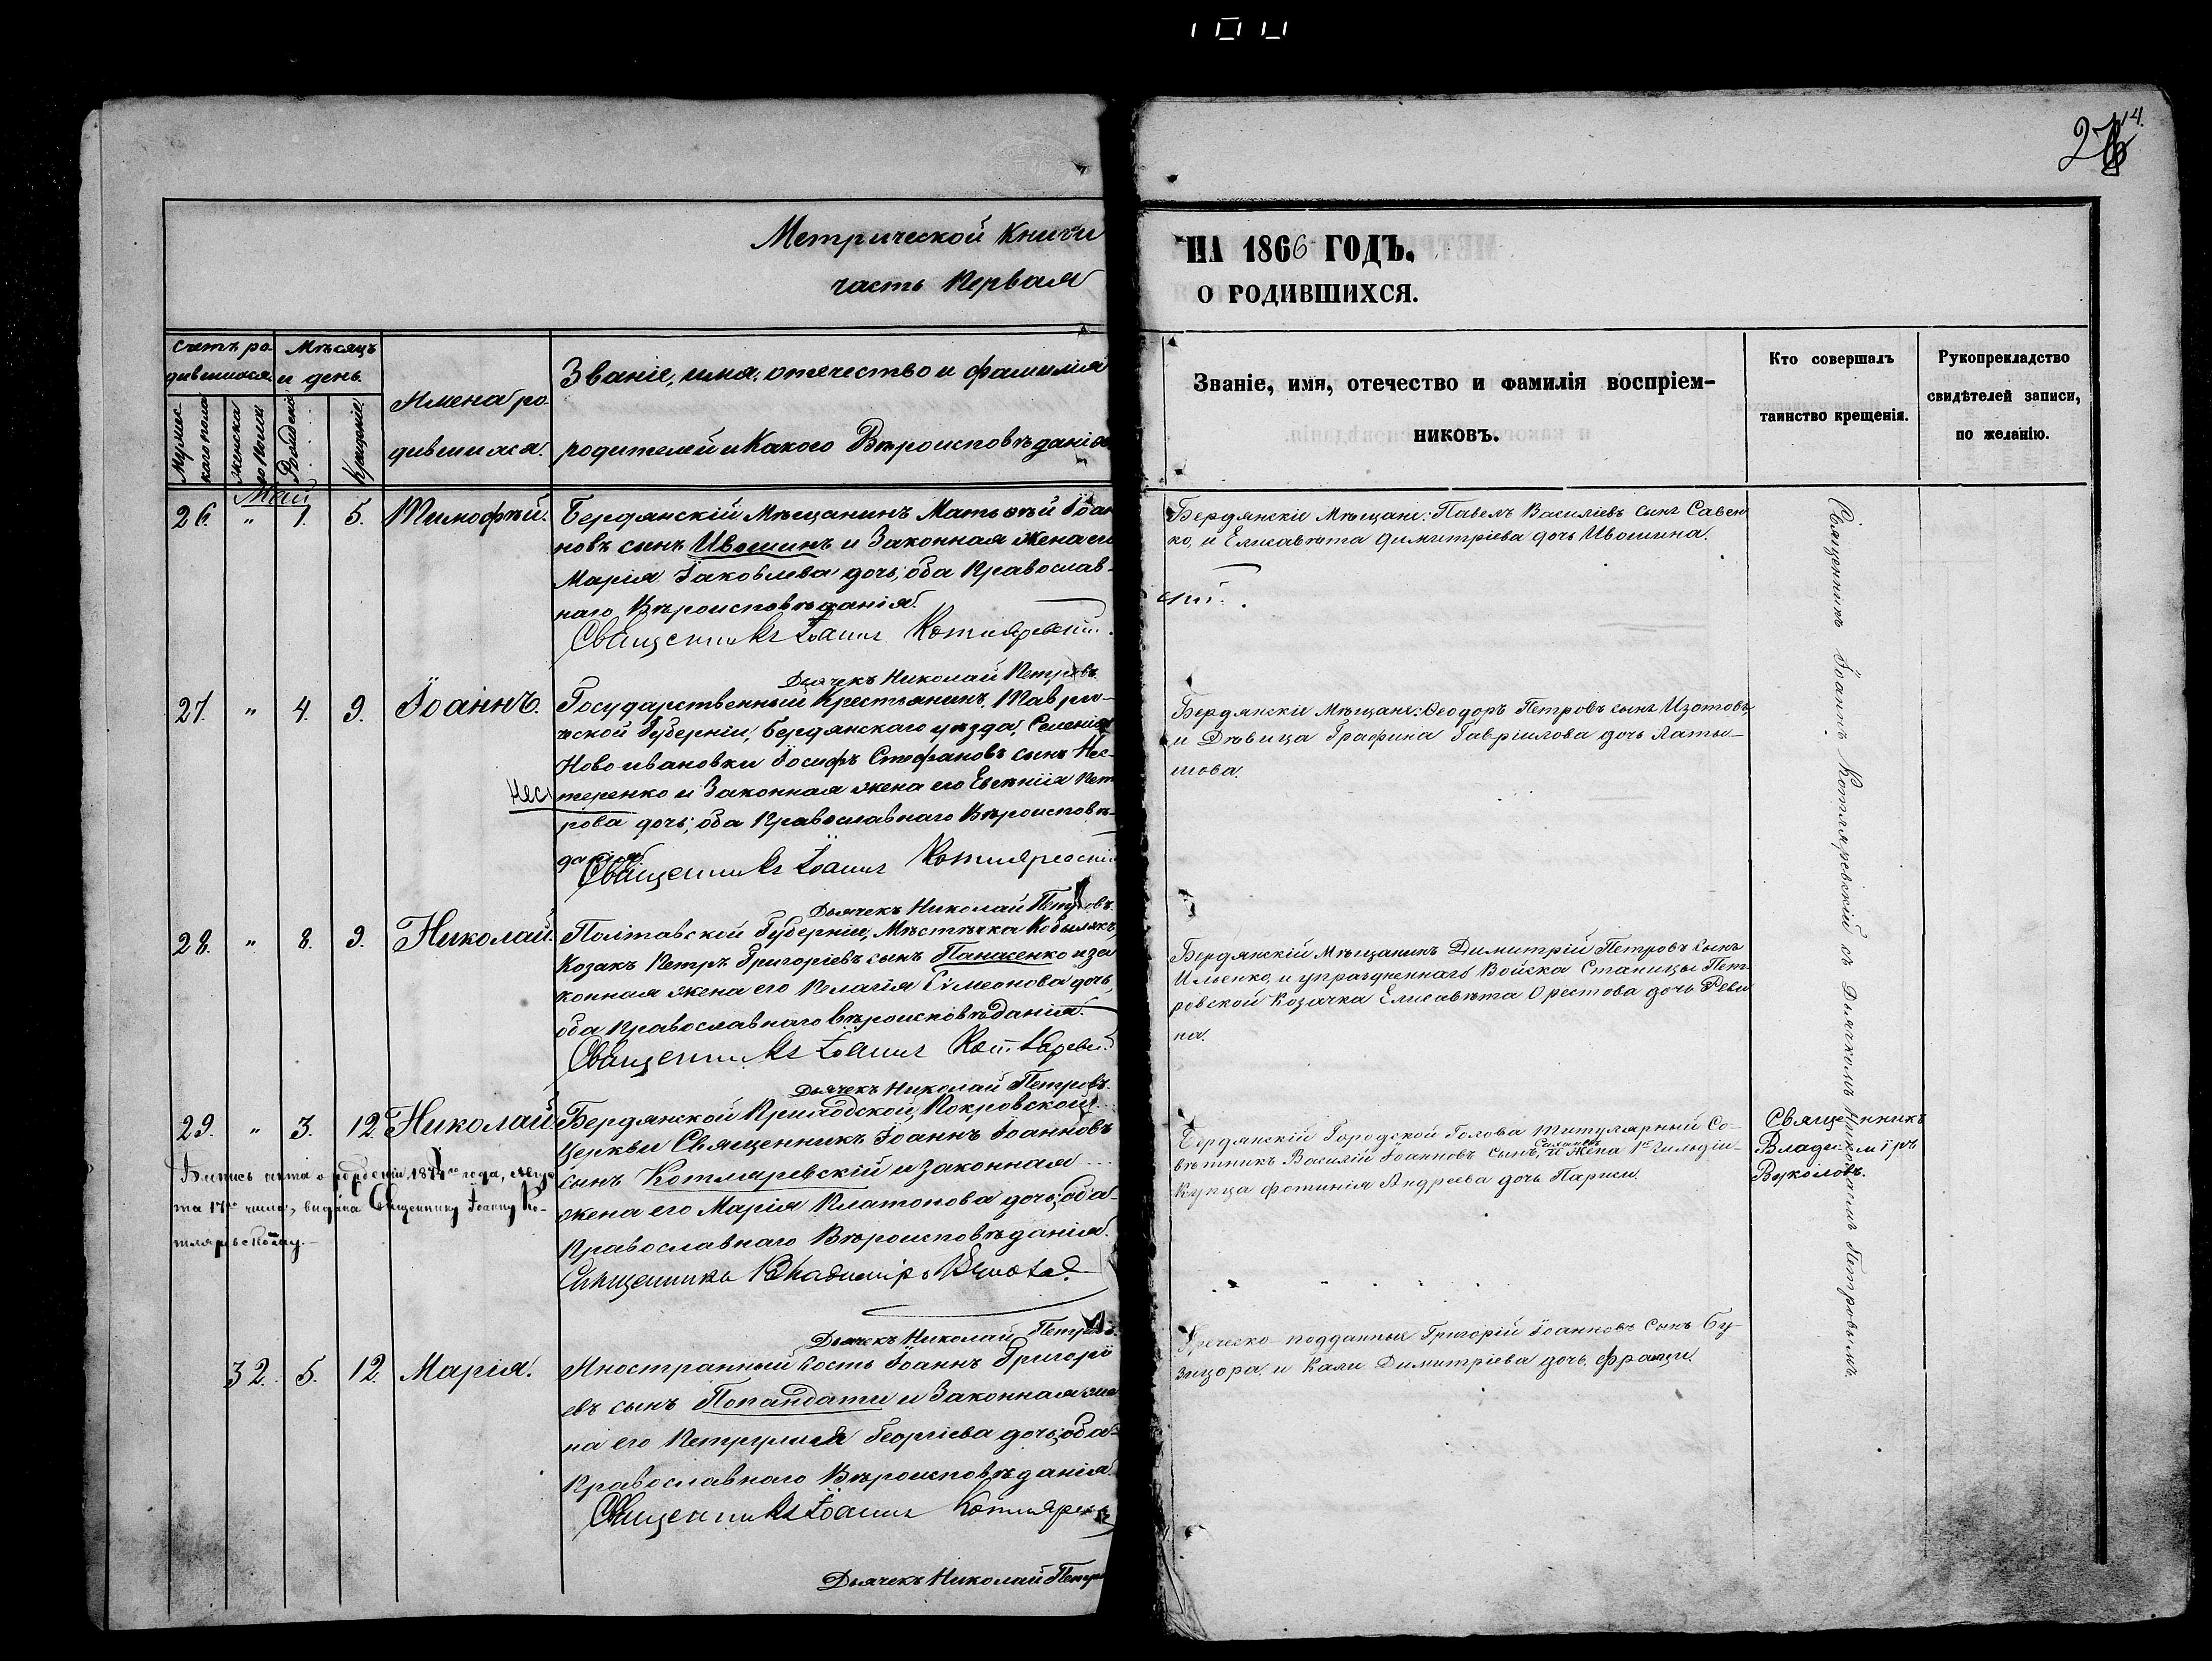 14.
Метрической Книги
часть Первая
НА 1866 ГОДЪ.
О РОДИВШИХСЯ.
Счетъ ро-
дившихся.
Мѣсяцъ
и день.
Мужес-
каго пола
Женска
го пола
Рожденія
Крещенія.
Имена ро-
дившихся.
Званіе, имя, отечество и фамилія
родителей и Какого Вѣроисповѣданія
Званіе, имя, отечество и фамилія воспріем-
никовъ.
Кто совершалъ
таинство крещенія.
Рукоприкладство
свидѣтелей записи,
по желанію.
Май
26. " 1. 5. Тимофѣй.
Бердянскій Мѣщанинъ Матѳѣй Іоан
новъ сынъ Ивошинъ и Законная жена его
Марія Іаковлева дочь, оба Православ-
наго Вѣроисповѣданія.
Священникъ Іоаннъ Котляревскій.
Дьячекъ Николай Петровъ.
Бердянскіе Мѣщане: Павелъ Василіевъ сынъ Савен
ко, и Елисавѣта Димитріева дочь Ивошина.
27. " 4. 9. Іоаннъ.
Государственный Крестьянинъ, Таври-
ческой Губерніи, Бердянскаго уѣзда, Селенія
Ново-ивановки Іосифъ Стефановъ сынъ Нес-
Нес
теренко и Законная жена его Евѳимія Пет
рова дочь; оба Православнаго Вѣроисповѣ-
данія.
Священникъ Іоаннъ Котляревскій
Дьячекъ Николай Петровъ.
Бердянскіе Мѣщане: Ѳеодоръ Петровъ сынъ Изотовъ,
и Дѣвица Графина Гавріилова дочь Латы-
шова.
28. " 8. 9. Николай.
Полтавской Губерніи, Мѣстечка Кобылякъ,
Козакъ Петръ Григоріевъ сынъ Панасенко и за
конная жена его Пелагія Симеонова дочь,
оба Православнаго вѣроисповѣданія.
Священникъ Іоаннъ Котляревскій
Дьячекъ Николай Петровъ.
Бердянскій Мѣщанинъ Димитрій Петровъ сынъ
Ильенко, и упраздненнаго Войска Станицы Пет-
ровской Козачка Елисавѣта Орестова дочь Реви
на.
29. " 3. 12. Николай
Бердянской Приходской Покровской
Церкви Священникъ Іоаннъ Іоанновъ
сынъ Котляревскій и законная
жена его Марія Платонова дочь; оба
Православнаго Вѣроисповѣданія.
Священникъ Владиміръ Вуколовъ.
Дьячекъ Николай Петровъ.
та 17го числа, выдана Священнику Іоанну Ко-
тляревскому.
Бердянскій Городской Голова Титулярный Со-
вѣтникъ Василій Іоанновъ сынъ, и жена 1й Гильдіи
Купца Фотинія Андреева дочь Париси.
Священникъ
Владиміръ
Вуколовъ.
32. 5. 12. Марія.
Иностранный гость Іоаннъ Григорі
евъ сынъ Попандати и Законная же
на его Петрулия Георгіева дочь; оба
Православнаго Вѣроисповѣданія.
Священникъ Іоаннъ Котляревскій
Дьячекъ Николай Петровъ
Греческо-подданные Григорій Іоанновъ Сынъ Бу-
зицора, и Кали Димитріева дочь Франци.
Священникъ Іоаннъ Котляревскій съ Дьячкомъ Николаемъ Петровымъ.